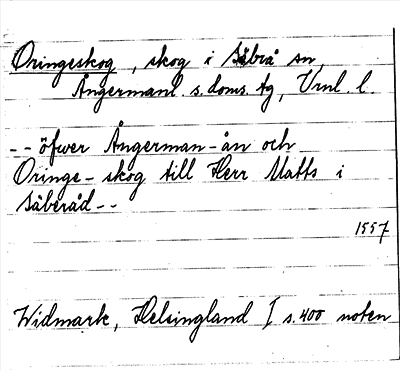 Oringeskog, skog i Säbrå sn,
Ångermanl. s. doms. tg, Vrnl. l.
-- öfwer Ångerman-ån och
Oringe-skog till Herr Matts i
Säberåd --
1557
Widmark, Helsingland I s. 400 noten